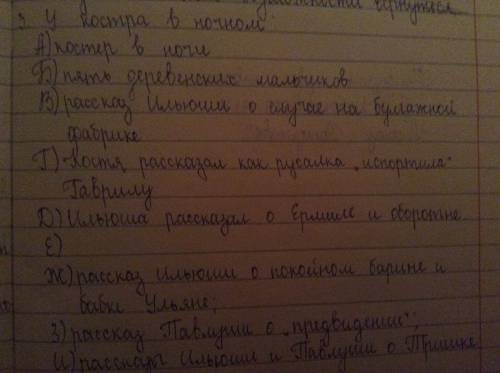 вернуться
3. У костра в ночном
А) костер в ночи
Б) пять деревенских мальчиков
В) рассказ Ильюши о случае на бумажной
фабрике
Г) Костя рассказал как русалка "испортила"
Гаврилу
Д) Ильюша рассказал о Ермиле и оборотне
Е)
Ж) рассказ Ильюши о покойном барине и
бабке Ульяне;
З) рассказ Павлуши о "предвидении";
И) рассказы Ильюши и Павлуши о Тришке